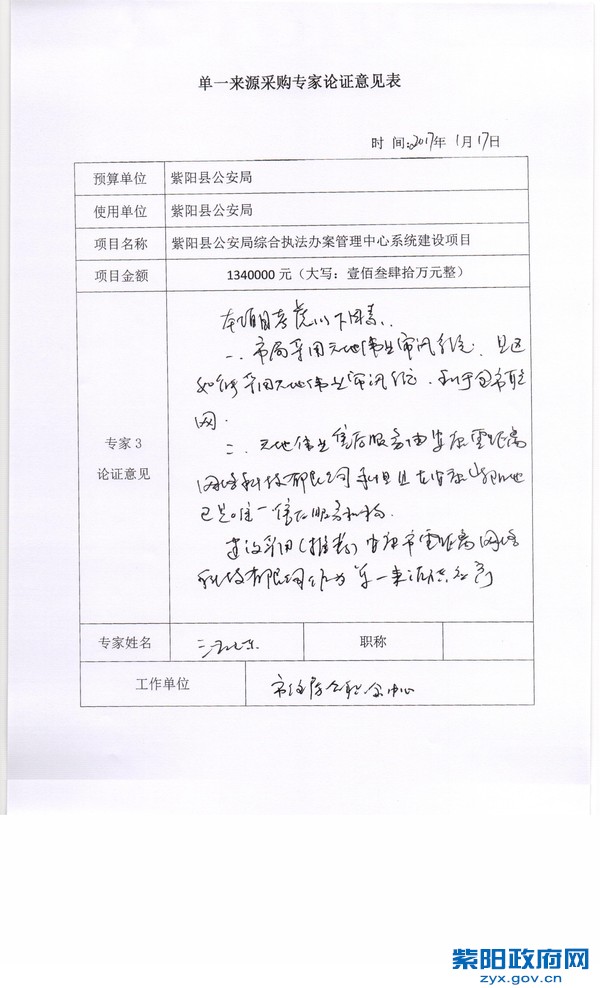 单一来源采购专家论证意见表
时 间:2017年 1月17日
预算单位 紫阳县公安局
使用单位 紫阳县公安局
项目名称 紫阳县公安局综合执法办案管理中心系统建设项目
项目金额 1340000 元（大写：壹佰叁肆拾万元整）
专家 3
论证意见
本项目考虑以下因素.
一、市局采用天地伟业审讯系统、县区
如能采用天地伟业审讯系统,利于全市联
网.
二、天地伟业售后服务由安康零距离
网络科技有限公司
唯一售后服务机构.
建议采用(推荐)安康市零距离网络
科技有限公司作为单一来源供应商
专家姓名
职称
工作单位
中心
紫阳政府网
zyx.gov.cn